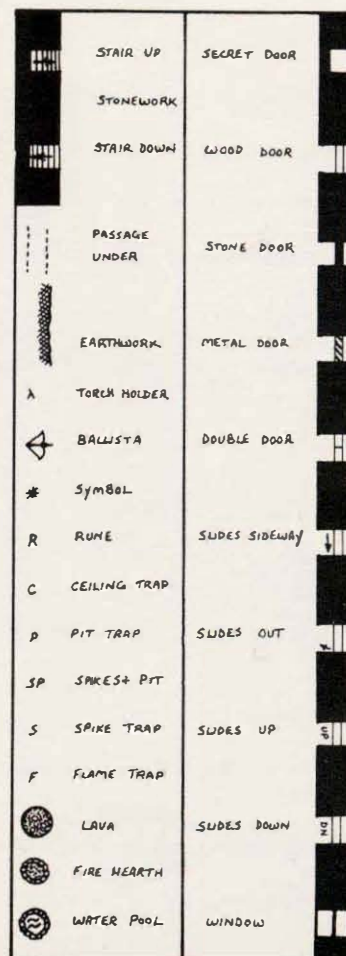 STAIR UP
STONEWORK
STAIR DOWN
PASSAGE
UNDER
EARTHWORK
λ TORCH HOLDER
BALLISTA
SYMBOL
R RUNE
C CEILING TRAP
P PIT TRAP
SP SPIKES+ PIT
S SPIKE TRAP
F FLAME TRAP
LAVA
FIRE HEARTH
WATER POOL
SECRET DOOR
WOOD DOOR
STONE DOOR
METAL DOOR
DOUBLE DOOR
SLIDES SIDEWAY
SLIDES OUT
SLIDES UP UP
SLIDES DOWN DN
WINDOW